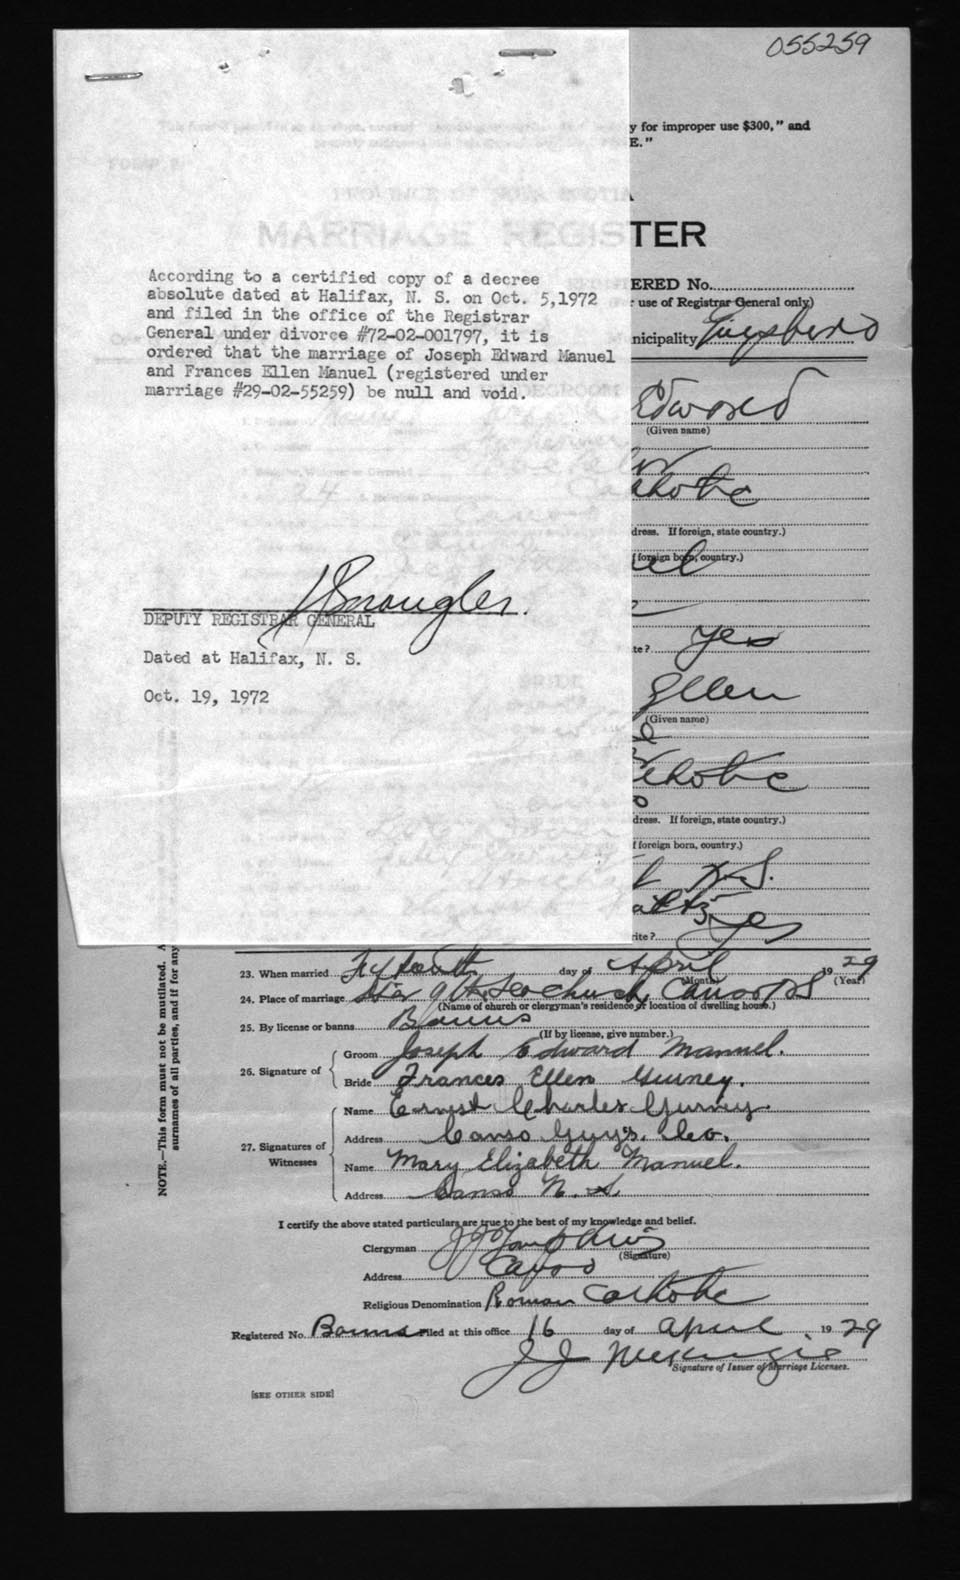 055259
y for improper use $300," and
E."
MARRIAGE REGISTER
ERED No.
r use of Registrar General only)
nicipality
According to a certified copy of a decree
absolute dated at Halifax, N. S. on Oct. 5,1972
and filed in the office of the Registrar
General under divorce #72-02-001797, it is
ordered that the marriage of Joseph Edward Manuel
and Frances Ellen Manuel (registered under
marriage #29-02-55259) be null and void.
DEPUTY REGISTRAR GENERAL
Dated at Halifax, N. S.
Oct. 19, 1972
Edward
(Given name)
dress. If foreign, state country.)
foreign born, country.)
te? yes
Ellen
(Given name)
dress. If foreign, state country.)
f foreign born, country.)
N.S.
rite? yes
NOTE.—This form must not be mutilated. A
surnames of all parties, and if for any
23. When married day of April 1929
(Month) (Year)
24. Place of marriage Star of the Sea Church, Canso N S
(Name of church or clergyman's residence or location of dwelling house.)
25. By license or banns Banns
(If by license, give number.)
26. Signature of
Groom Joseph Edward Manuel.
Bride Frances Ellen Gurney.
27. Signatures of Witnesses
Name Ernest Charles Gurney.
Address Canso Guys. Co.
Name Mary Elizabeth Manuel.
Address Canso N. S.
I certify the above stated particulars are true to the best of my knowledge and belief.
Clergyman
(Signature)
Address Canso
Religious Denomination Roman Catholic
Registered No. Banns Filed at this office 16 day of April 1929
J J McKenzie
Signature of Issuer of Marriage Licenses.
[SEE OTHER SIDE]